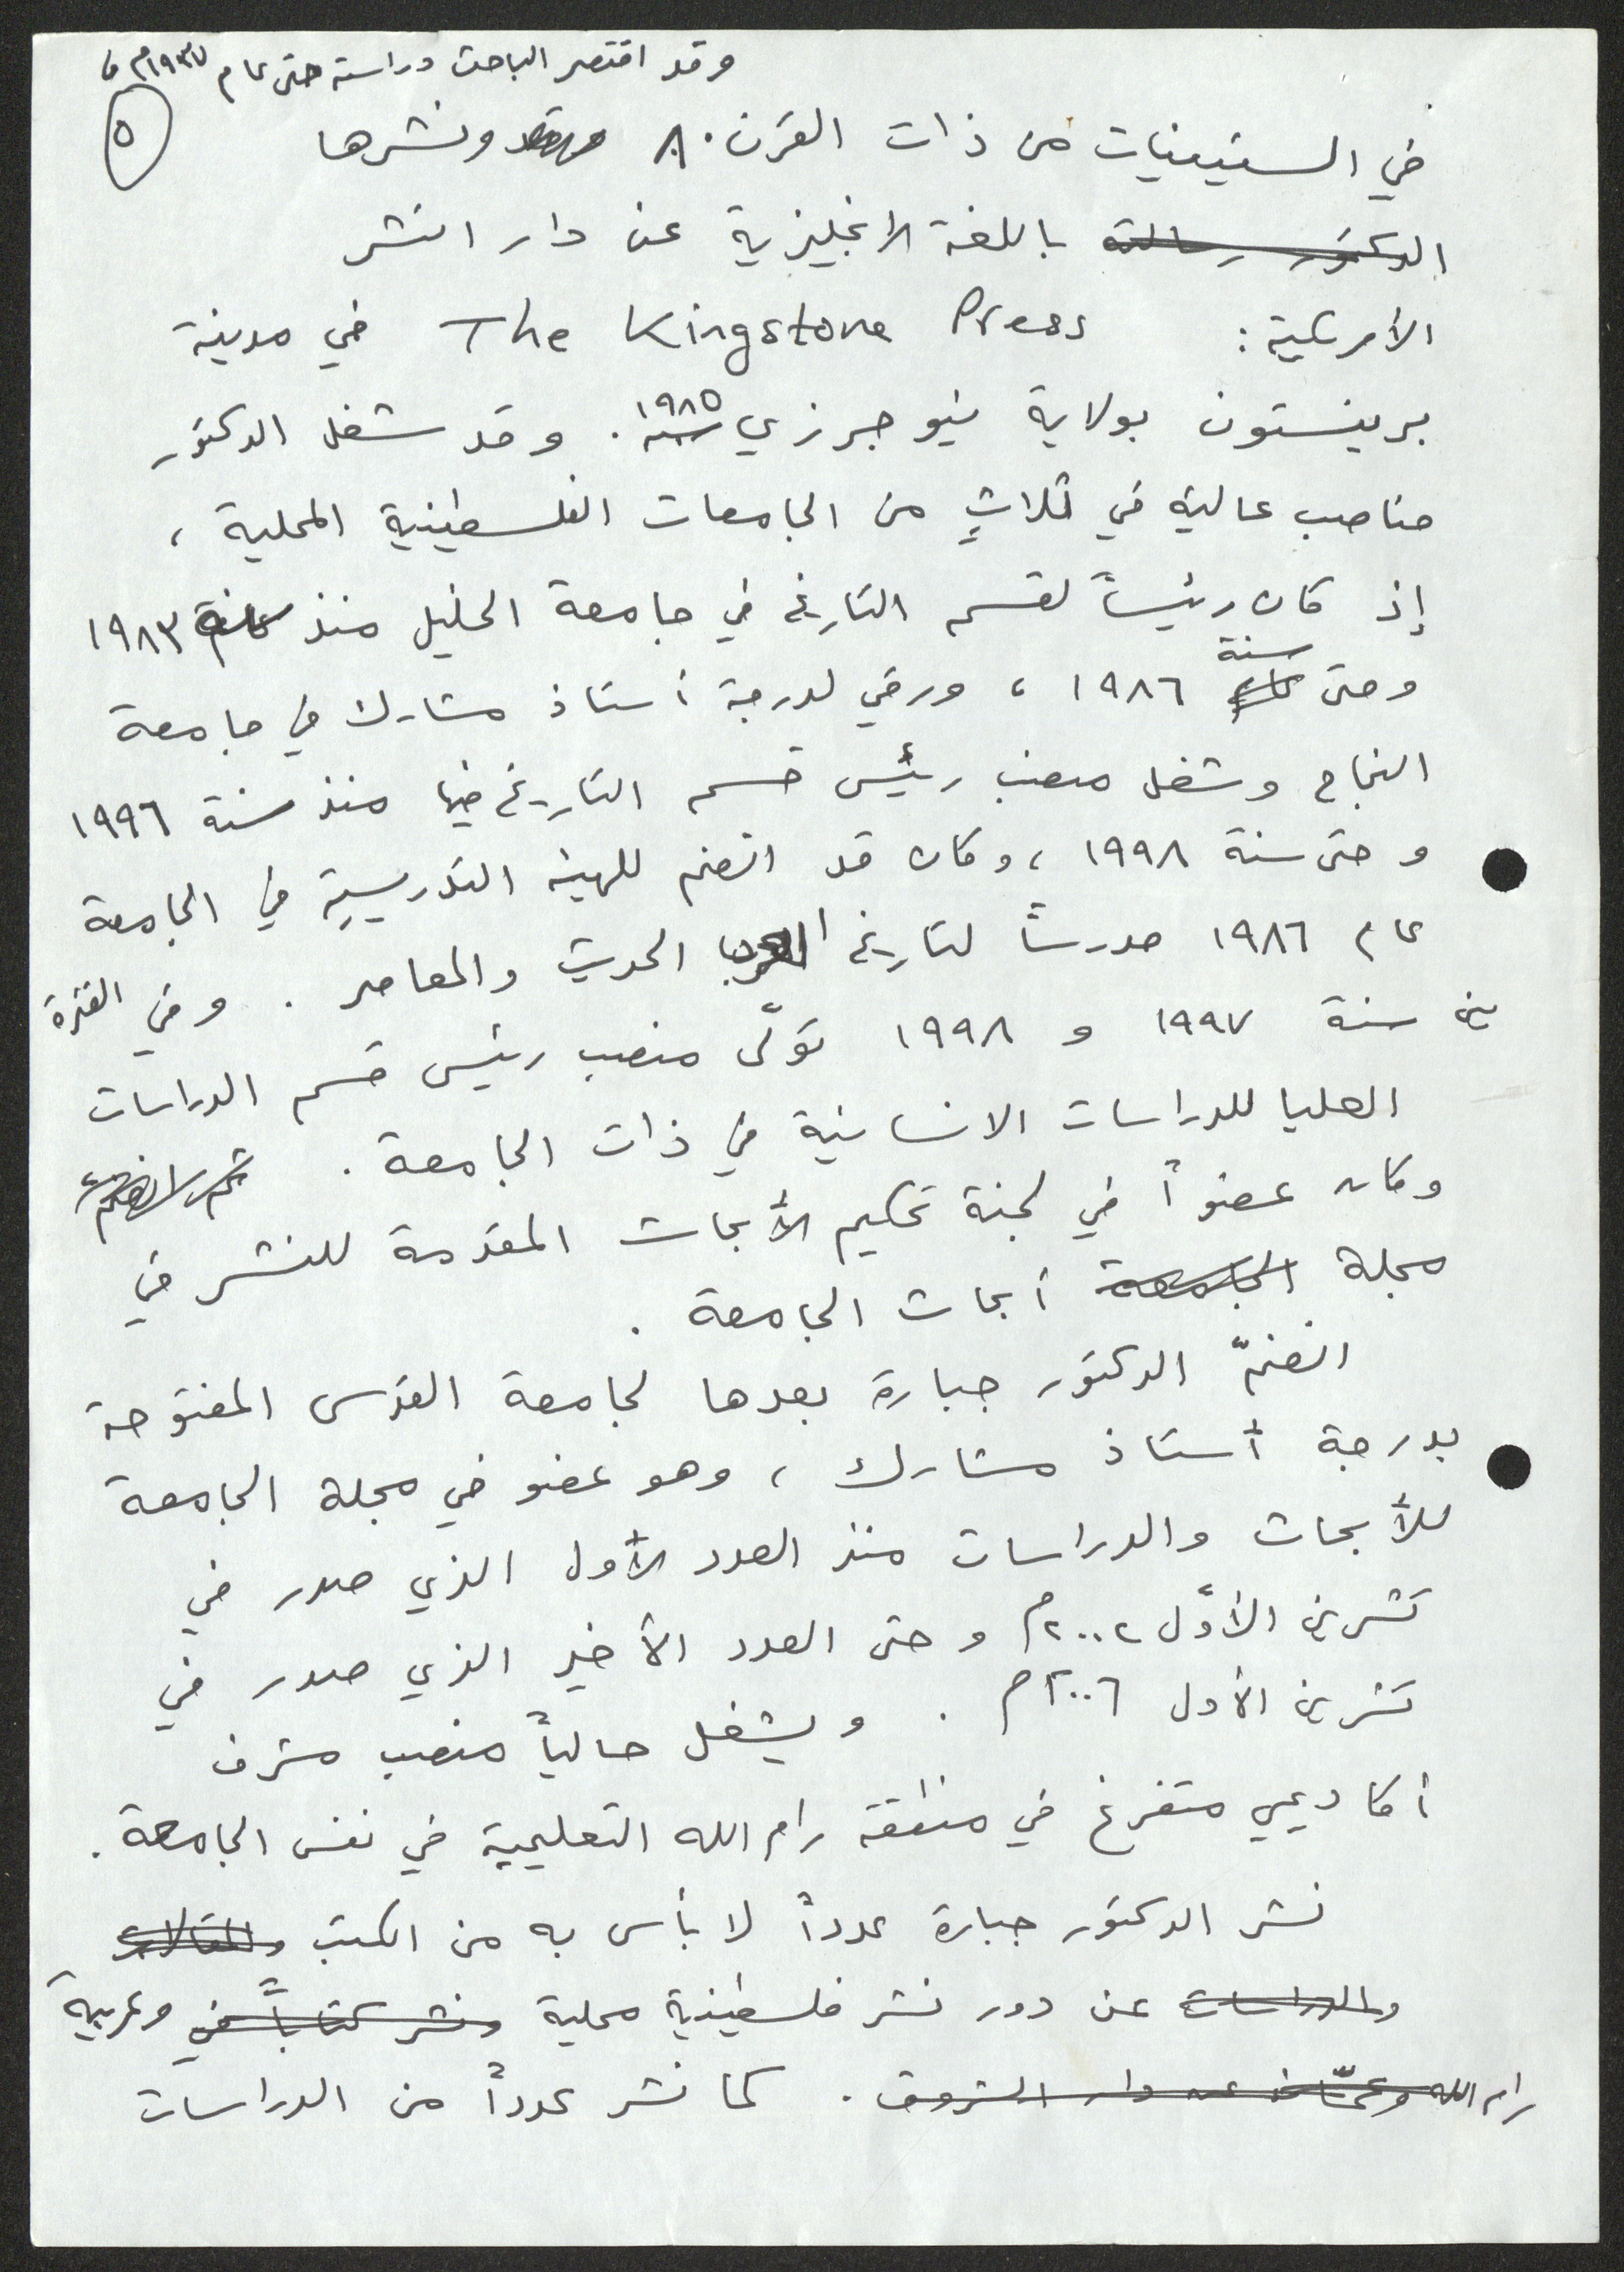 وقد اقتصر الباحث دراسته حتى عام ١٩٣٧م،
٥
في الستينيات من ذات القرن. ونشرها
الدكتور رسالته باللغة الانجليزية عن دار النشر
الأمريكية: The Kingstone Press في مدينة
برينستون بولاية نيو جيرزي سنة ١٩٨٥. وقد شغل الدكتور
مناصب عالية في ثلاثٍ من الجامعات الفلسطينية المحلية،
إذ كان رئيساً لقسم التاريخ في جامعة الخليل منذ سنة ١٩٨٣
وحتى عام سنة ١٩٨٦، ورقي لدرجة أستاذ مشارك في جامعة
النجاح وشغل منصب رئيس قسم التاريخ فيها منذ سنة ١٩٩٦
وحتى سنة ١٩٩٨، وكان قد انضم للهيئة التدريسية في الجامعة
عام ١٩٨٦ مدرساً لتاريخ العرب الحديث والمعاصر. وفي الفترة
بين سنة ١٩٩٧ و ١٩٩٨ تولّى منصب رئيس قسم الدراسات
العليا للدراسات الانسانية في ذات الجامعة.
وكان عضواً في لجنة تحكيم الأبحاث المقدمة للنشر في
مجلة الجامعة أبحاث الجامعة.
انضمّ الدكتور جبارة بعدها لجامعة القدس المفتوحة
بدرجة أستاذ مشارك، وهو عضو في مجلة الجامعة
للأبحاث والدراسات منذ العدد الأول الذي صدر في
تشرين الأوّل ٢٠٠٢م وحتى العدد الأخير الذي صدر في
تشرين الأول ٢٠٠٦م. ويشغل حالياً منصب مشرف
أكاديمي متفرغ في منطقة رام الله التعليمية في نفس الجامعة.
نشر الدكتور جبارة عدداً لا بأس به من الكتب والمقالات
والدراسات عن دور نشر فلسطينية محلية ونشر كتاباً في وعربية
رام الله وعمّان عن دار الشروق. كما نشر عدداً من الدراسات